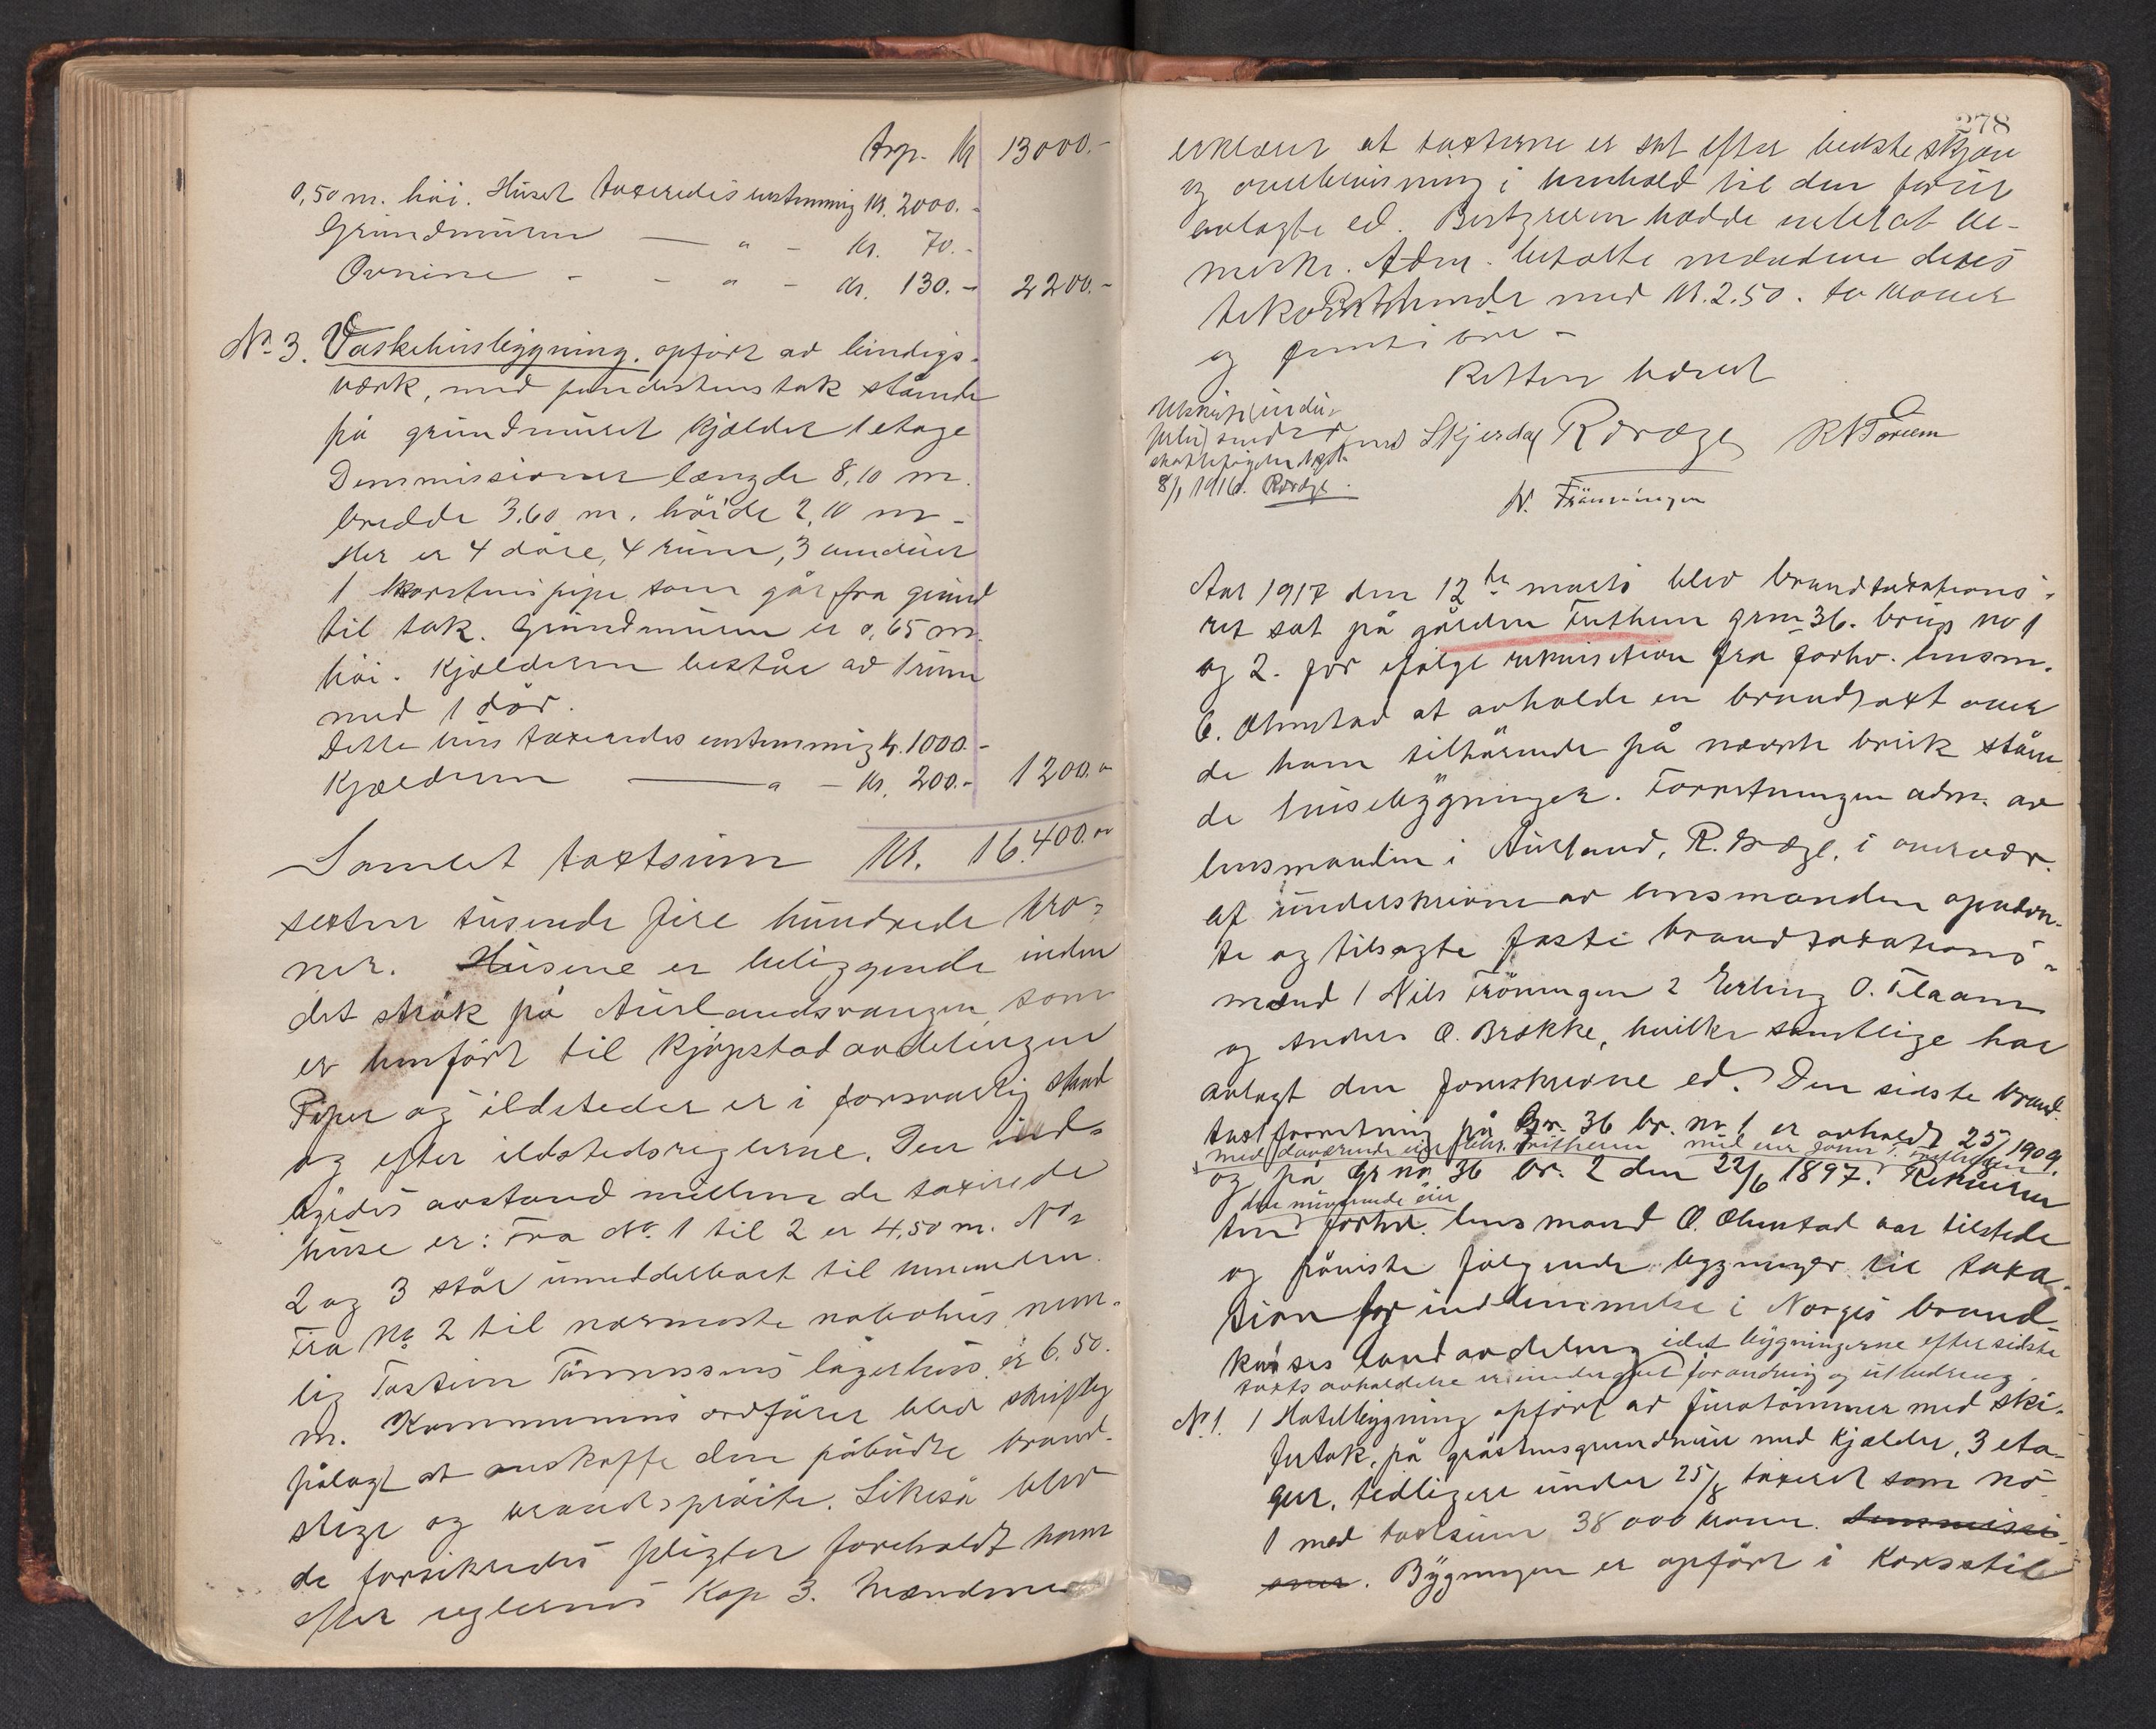 Trp. Kr 13000.-
0,50 m. høi. Huset taxeredes enstemmig Kr. 2000.-
Grundmuren — " - kr. 70.-
Ovnene - - " - kr. 130.- 2200.-
No 3. Vaskehusbygning. opført av bindings-
værk, med stenstak stående
på grundmuret kjælder 1 etage
Demmissioner længde 8,10 m.
bredde 3.60 m. høide 2,10 m-
Her er 4 døre, 4 rum, 3 vinduer
1 skorstenspipe som går fra grund
til tak. Grundmuren er 0,65 m.
høi. Kjælderen består av 1 rum
med 1 dør.
Dette hus taxeredes enstemmig kr. 1000.-
Kjælderen — " - kr. 200.- 1200.00
Samlet taxtsum Kr. 16.400.00
sexten tusende fire hundrede kro-
ner. Husene er beliggende inden
det strøk på Aurlandsvangen, som
er henført til Kjøpstadavdelingen
Piper og ildsteder er i forsvarlig stand
og efter ildstedsreglerne. Den ind-
byrdes avstand mellem de taxerede
huse er: Fra No. 1 til 2 er 4,50 m. No.
2 og 3 står umiddelbart til hinanden.
Fra No. 2 til nærmeste nabohus nem-
lig Torstein Tønnessens lagerhus er 6.50.
m. Kommunens ordfører blev skriftlig
pålagt at anskaffe den påbudte brand-
stige og brandsprøite. Likeså blev
de forsikredes pligter foreholdt ham
efter reglernes Kap 3. Mændene
278
erklærer at taxterne er sat efter bedste skjøn
og overbevisning i henhold til den forut
avlagte ed. Bestyreren hadde intet at be-
merke. Adm. betalte mændene deres
med Kr. 2.50. to kroner
og femti øre -
Retten hævet
Utskrift
sendt
skattefogden
8/1 1916. RBrøge.
Skjerdal RBrøge RNTorem
N. Frønningen
Aar 1917 den 12te marts blev brandtaxations-
ret sat på gården Fretheim grn 36. bruk no 1
og 2. for ifølge rekvisition fra forhv. lensm.
C. Ohnstad at avholde en brandtaxt over
de ham tilhørende på nævnte bruk ståen
de husebygninger. Forretningen adm. av
lensmanden i Aurland, R. Brøge, i overvær
af underskrevne av lensmanden opnævn-
te og tilsagte faste brandtaxations-
mænd 1 Nils Frønningen 2 Erling O. Flaam
og Anders O. Brekke, hvilke samtlige har
avlagt den foreskrevne ed. Den sidste brand-
taxtforretning på Gr. 36 br. nr 1 er avholdt 25/8 1909.
med daværende eier Chr. Fretheim
og på Gr no. 36 br. 2 den 22/6 1897. Rekviren
den nuværende eier
ten forhv. lensmand C. Ohnstad var tilstede
og påviste følgende bygninger til taxa-
sion for indlemmelse i Norges brand-
kasses landavdeling idet bygningerne efter sidste
taxts avholdelse er undergaaet forandring og utbedring.
No. 1. 1 Hotelbygning opført av furutømmer med ski-
fertak, på gråstensgrundmur med kjælder, 3 eta-
ger, tidligere under 25/8 taxeret som no
1 med taxtsum 38 000 kroner. Demmissi-
oner. Bygningen er opført i Korsstil